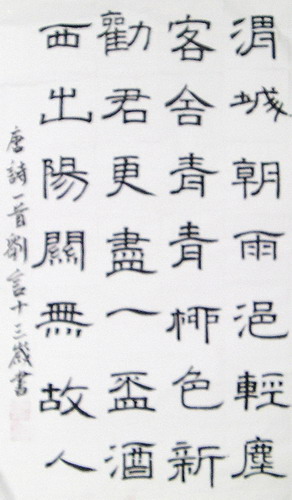 渭城朝雨浥輕塵
客舍青青栁色新
勸君更盡一盃酒
西出陽關無故人
唐詩一首劉言十三歲書